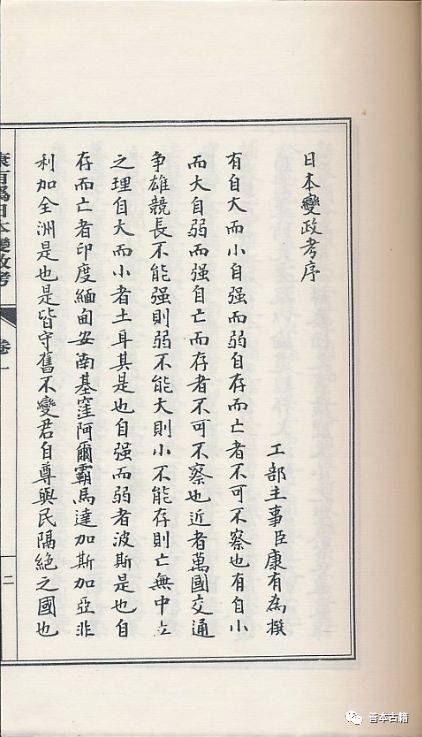 日本變政考序
工部主事臣康有為撰
有自大而小自强而弱自存而亡者不可不察也有自小
而大自弱而强自亡而存者不可不察也近者萬國交通
争雄競長不能强則弱不能大則小不能存則亡無中立
之理自大而小者土耳其是也自强而弱者波斯是也自
存而亡者印度緬甸安南基窪阿爾霸馬達加斯加亞非
利加全洲是也是皆守舊不變君自尊與民隔絶之國也
康有為日本變政考
卷一
二
善本古籍